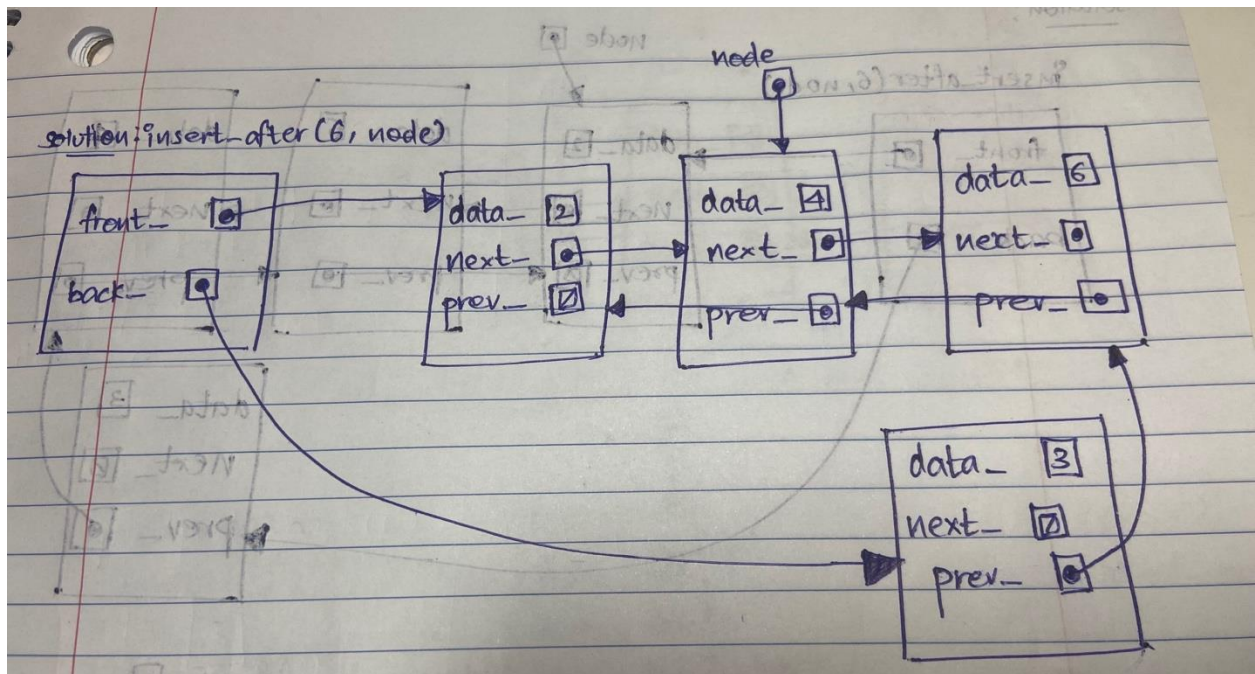 node
solution: insert_after(6, node)
front_
back_
data_ 2
next_
prev_
data_ 4
next_
prev_
data_ 6
next_
prev_
data_ 3
next_
prev_